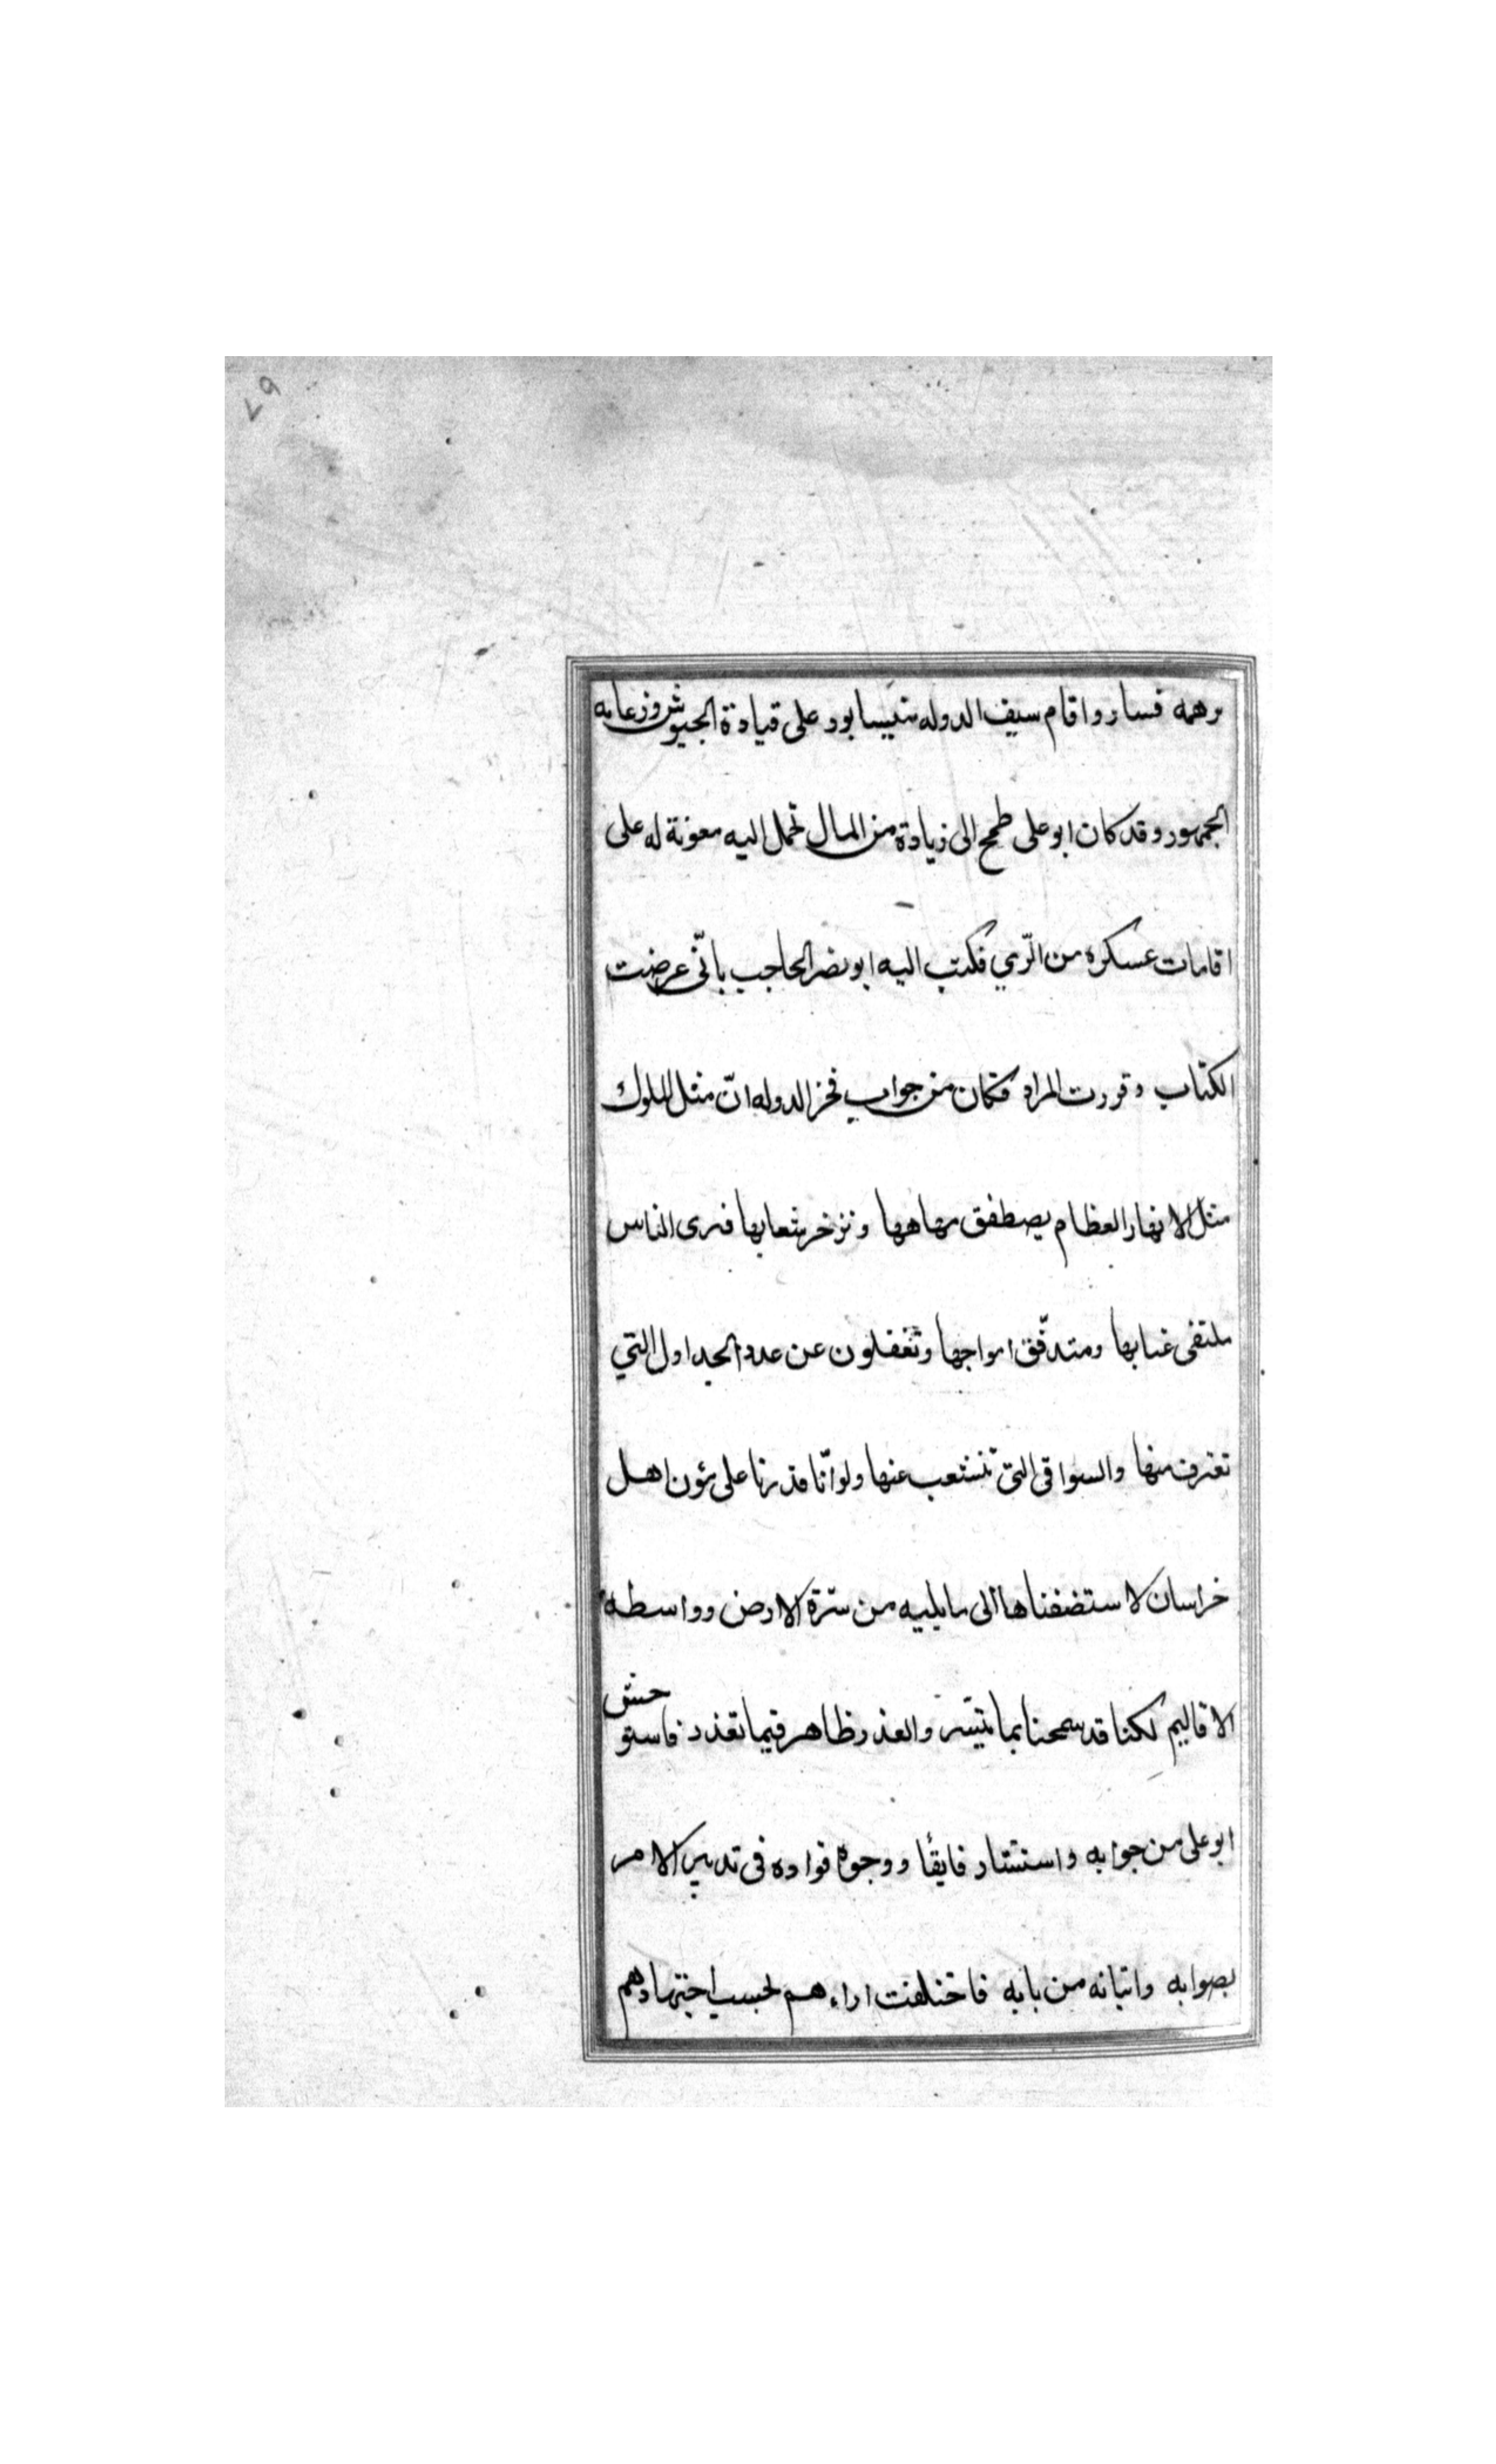 ٩٧
برهمه فسار واقام سيف الدوله بنيسابور على قيادة الجيوش وزعامه
الجمهور وقد كان ابو على طمح الى زيادة من المال تحمل اليه معونة له على
اقامات عسكره من الرّي فكتب اليه ابو نصر الحاجب بانّى عرضت
الكتاب وقررت المراد فكان من جواب فخر الدوله انّ مثل الملوك
مثل الانهار العظام يصطفق وتزخر شعابها فيرى الناس
ملتقى عبابها ومتدفّق امواجها وتغفلون عن عدد الجداول التي
تغترف منها والسواقى التى تنشعب عنها ولو انّا قدرنا على اهل
خراسان لاستضفناها الى ما يليه من سرّة الارض وواسطه
الاقاليم لكنا قد سمحنا بما تيسّر والعذر ظاهر فيما تعذر فاستوحش
ابو على من جوابه واستشار فايقًا ووجوه قواده فى تدبير الامر
بصوابه واتيانه من بابه فاختلفت اراءهم بحسب اجتهادهم